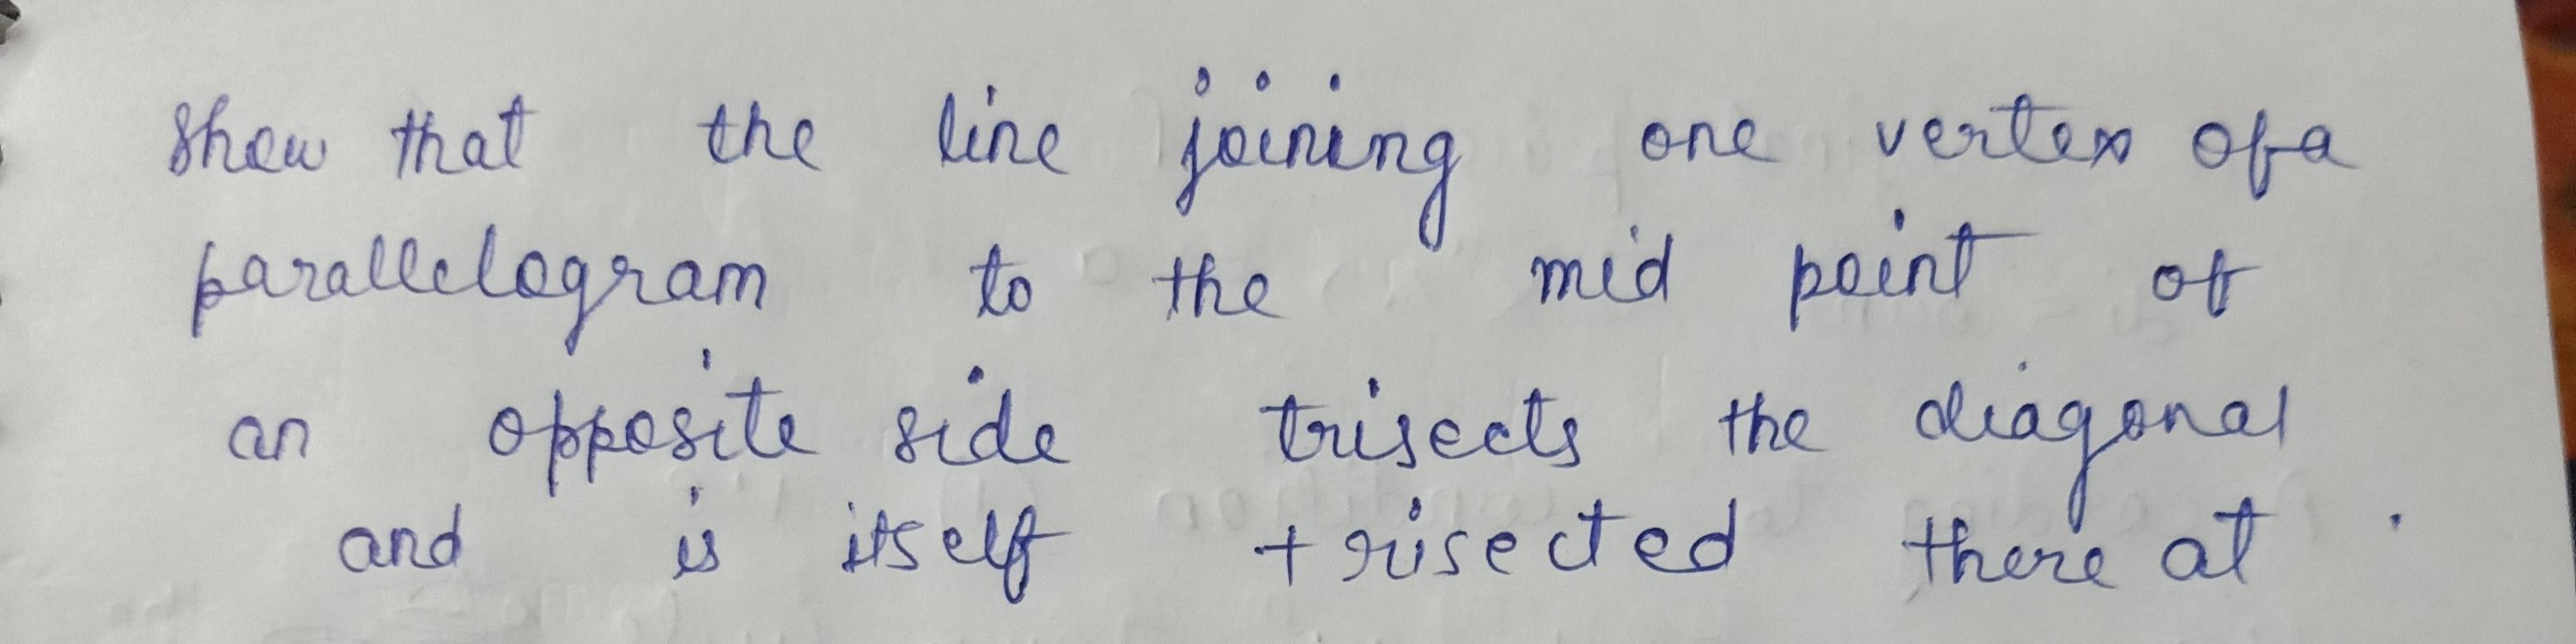 Show that the line joining one vertex of a
parallelogram to the mid point of
an opposite side trisects the diagonal
and is itself trisected there at .